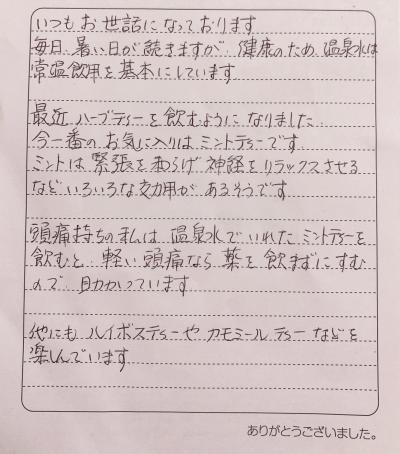 いつもお世話になっております
毎日 暑い日が続きますが、健康のため 温泉水は
常温飲用を基本にしています
最近 ハーブティーを飲むようになりました.
今一番の お気に入りは ミントティーです
ミントは 緊張を和らげ 神経をリラックスさせる
など いろいろな効用が あるそうです
頭痛持ちの私は 温泉水でいれた ミントティーを
飲むと 軽い頭痛なら 薬を飲まずにすむ
ので 助かっています
他にも ルイボスティーや カモミールティーなどを
楽しんでいます
ありがとうございました。